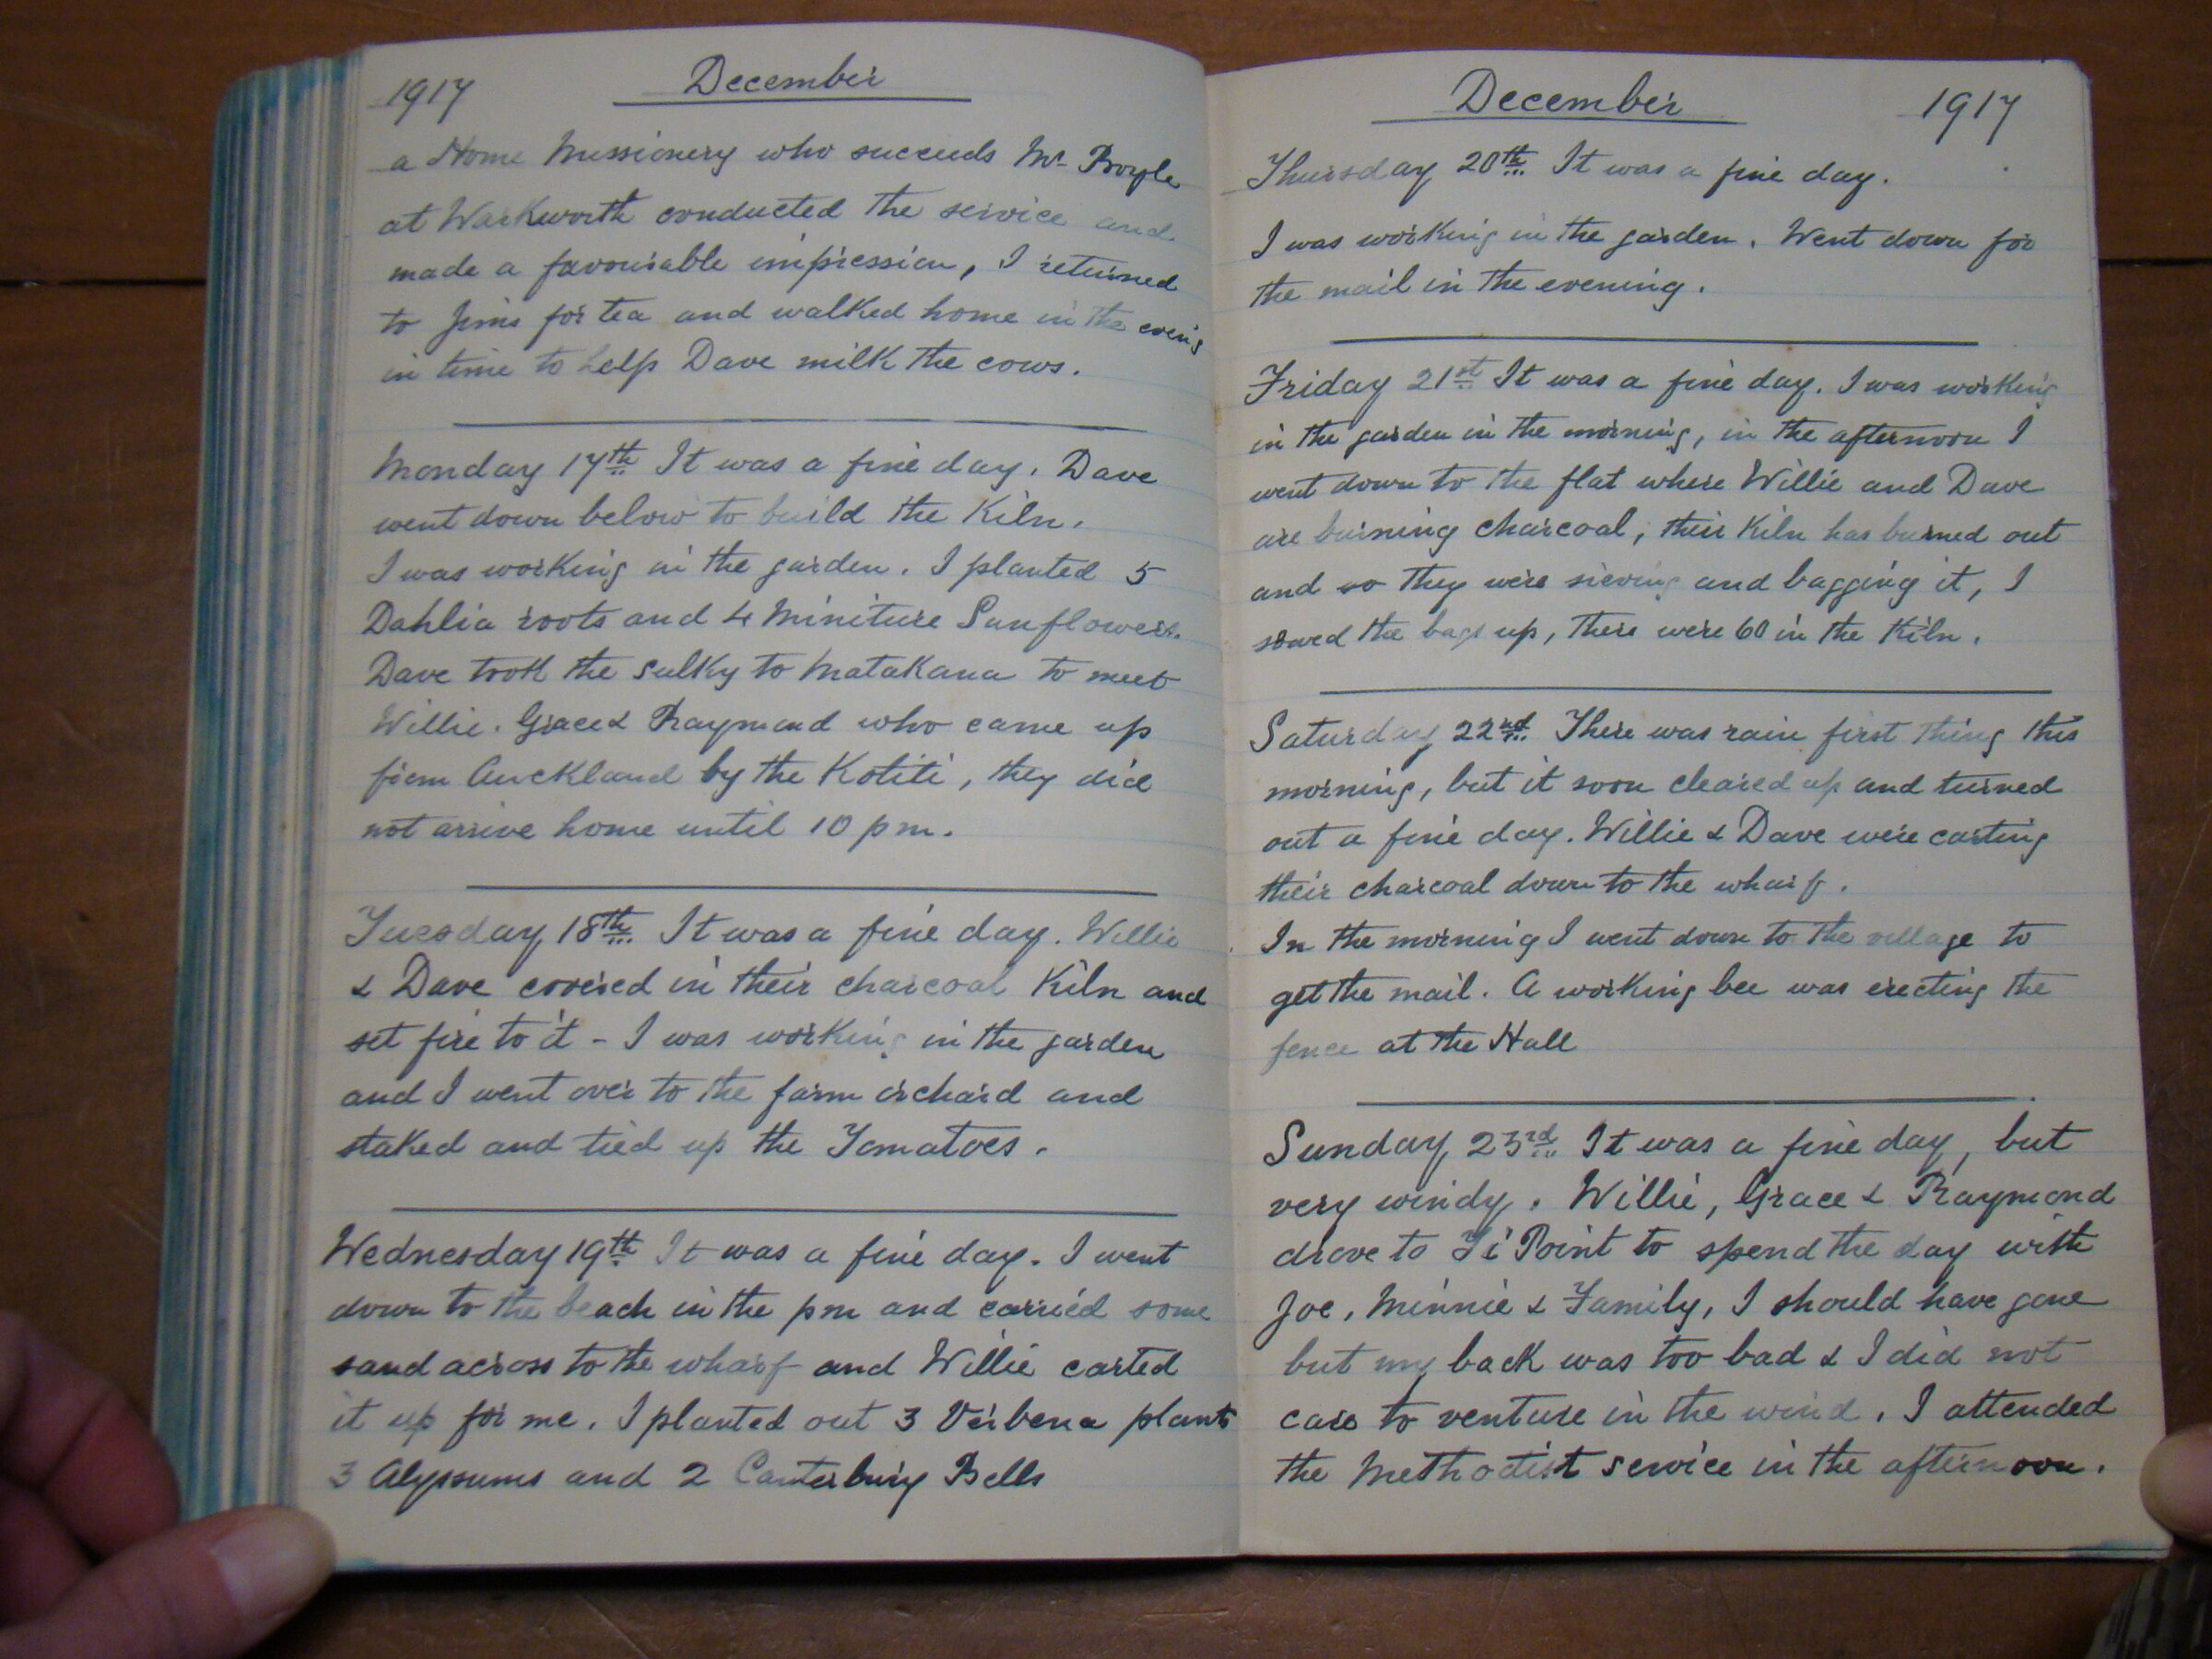 1917
December
a Home Missionery who succeeds Mr Boyle
at Warkworth conducted the service and
made a favourable impression, I returned
to Jims for tea and walked home in the eve'g
in time to help Dave milk the cows.
Monday 17th It was a fine day. Dave
went down below to build the Kiln.
I was working in the garden. I planted 5
Dahlia roots and 4 Miniture Sunflowers.
Dave took the sulky to Matakana to meet
Willie. Grace & Raymond who came up
from Auckland by the Kotiti, they did
not arrive home until 10 pm.
Tuesday 18th It was a fine day. Willie
& Dave covered in their charcoal Kiln and
set fire to it - I was working in the garden
and I went over to the farm orchard and
staked and tied up the Tomatoes.
Wednesday 19th It was a fine day. I went
down to the beach in the pm and carried some
sand across to the wharf and Willie carted
it up for me. I planted out 3 Verbena plants
3 Alyssums and 2 Canterbury Bells
December
1917
Thursday 20th It was a fine day.
I was working in the garden. Went down for
the mail in the evening.
Friday 21st It was a fine day. I was working
in the garden in the morning, in the afternoon I
went down to the flat where Willie and Dave
are burning charcoal, their Kiln has burned out
and so they were sieving and bagging it, I
sewed the bags up, there were 60 in the Kiln.
Saturday 22nd There was rain first thing this
morning, but it soon cleared up and turned
out a fine day. Willie & Dave were carting
their charcoal down to the wharf.
In the morning I went down to the village to
get the mail. A working bee was erecting the
fence at the Hall
Sunday 23rd It was a fine day, but
very windy. Willie, Grace & Raymond
drove to Ti Point to spend the day with
Joe, Minnie & Family, I should have gone
but my back was too bad & I did not
care to venture in the wind. I attended
the Methodist service in the afternoon.